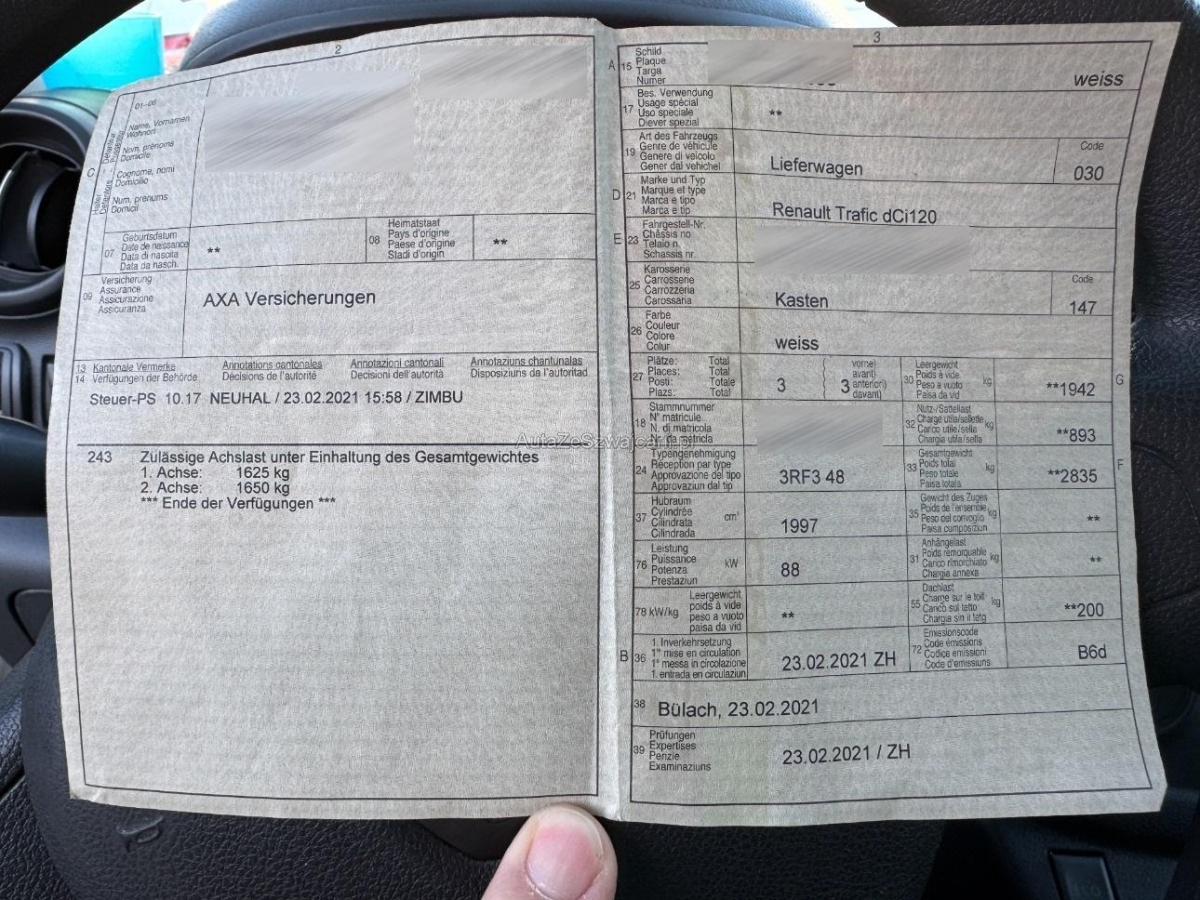 2
01–06
Name, Vornamen
Wohnort
Nom, prénoms
Domicile
C
Cognome, nomi
Domicilio
Num, prenums
Domicil
07
Geburtsdatum
Date de naissance
Data di nascita
Data da nasch.
**
08
Heimatstaat
Pays d'origine
Paese d'origine
Stadi d'origin
**
09
Versicherung
Assurance
Assicurazione
Assicuranza
AXA Versicherungen
13 Kantonale Vermerke Annotations cantonales Annotazioni cantonali Annotaziuns chantunalas
14 Verfügungen der Behörde Décisions de l'autorité Decisioni dell'autorità Disposiziuns da l'autoritad
Steuer-PS 10.17 NEUHAL / 23.02.2021 15:58 / ZIMBU
243 Zulässige Achslast unter Einhaltung des Gesamtgewichtes
1. Achse: 1625 kg
2. Achse: 1650 kg
*** Ende der Verfügungen ***
3
A 15
Schild
Plaque
Targa
Numer
weiss
17
Bes. Verwendung
Usage spécial
Uso speciale
Diever spezial
**
19
Art des Fahrzeugs
Genre de véhicule
Genere di veicolo
Gener dal vehichel
Lieferwagen
Code
030
D 21
Marke und Typ
Marque et type
Marca e tipo
Marca e tip
Renault Trafic dCi120
E 23
Fahrgestell-Nr.
Châssis no
Telaio n.
Schassis nr.
25
Karosserie
Carrosserie
Carrozzeria
Carossaria
Kasten
Code
147
26
Farbe
Couleur
Colore
Colur
weiss
27
Plätze: Total
Places: Total
Posti: Totale
Plazs: Total
3
3
vorne)
avant)
anteriori)
davant)
30
Leergewicht
Poids à vide
Peso a vuoto
Paisa da vid
kg
**1942
G
18
Stammnummer
N° matricule
N. di matricola
Nr. da matricla
32
Nutz-/Sattellast
Charge utile/sellette
Carico utile/sella
Chargia utila/sella
kg
**893
AutaZeSzwajcarii.pl
24
Typengenehmigung
Réception par type
Approvazione del tipo
Approvaziun dal tip
3RF3 48
33
Gesamtgewicht
Poids total
Peso totale
Paisa totala
kg
**2835
F
37
Hubraum
Cylindrée
Cilindrata
Cilindrada
cm³
1997
35
Gewicht des Zuges
Poids de l'ensemble
Peso del convoglio
Paisa cumposiziun
kg
**
76
Leistung
Puissance
Potenza
Prestaziun
kW
88
31
Anhängelast
Poids remorquable
Carico rimorchiato
Chargia annexa
kg
**
78 kW/kg
Leergewicht
poids à vide
peso a vuoto
paisa da vid
**
55
Dachlast
Charge sur le toit
Carico sul tetto
Chargia sin il tetg
kg
**200
B 36
1. Inverkehrsetzung
1re mise en circulation
1a messa in circolazione
1. entrada en circulaziun
23.02.2021 ZH
72
Emissionscode
Code émissions
Codice emissioni
Code d'emissiuns
B6d
38 Bülach, 23.02.2021
39
Prüfungen
Expertises
Perizie
Examinaziuns
23.02.2021 / ZH